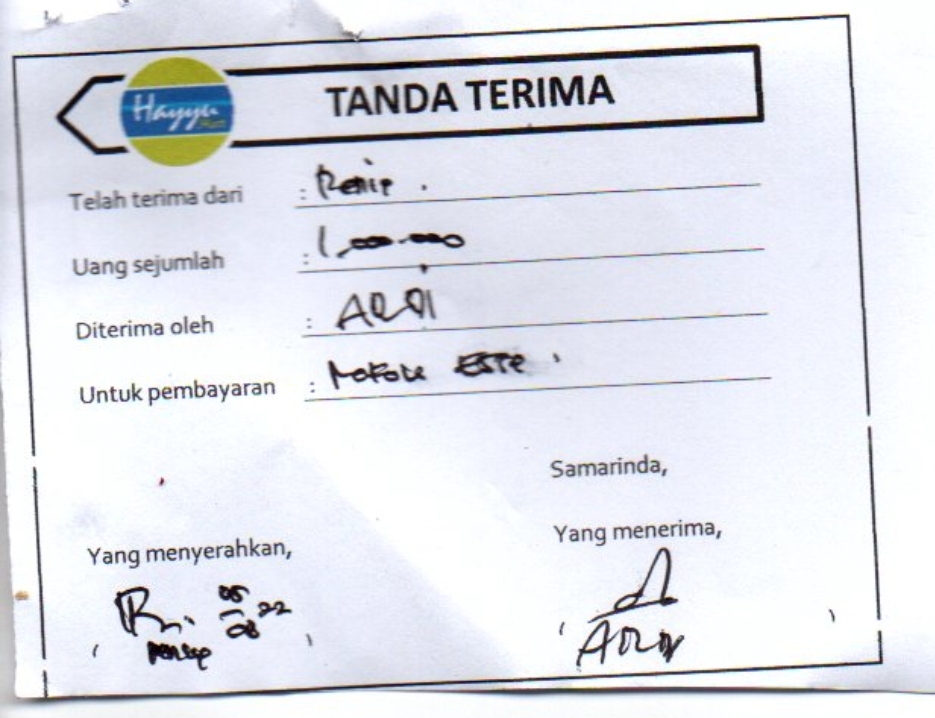 Hayyu
TANDA TERIMA
Telah terima dari :
Uang sejumlah : 1,000.000
Diterima oleh : ARDI
Untuk pembayaran :
Samarinda,
Yang menyerahkan,
Yang menerima,
05
08 22
( )
( ARDI )